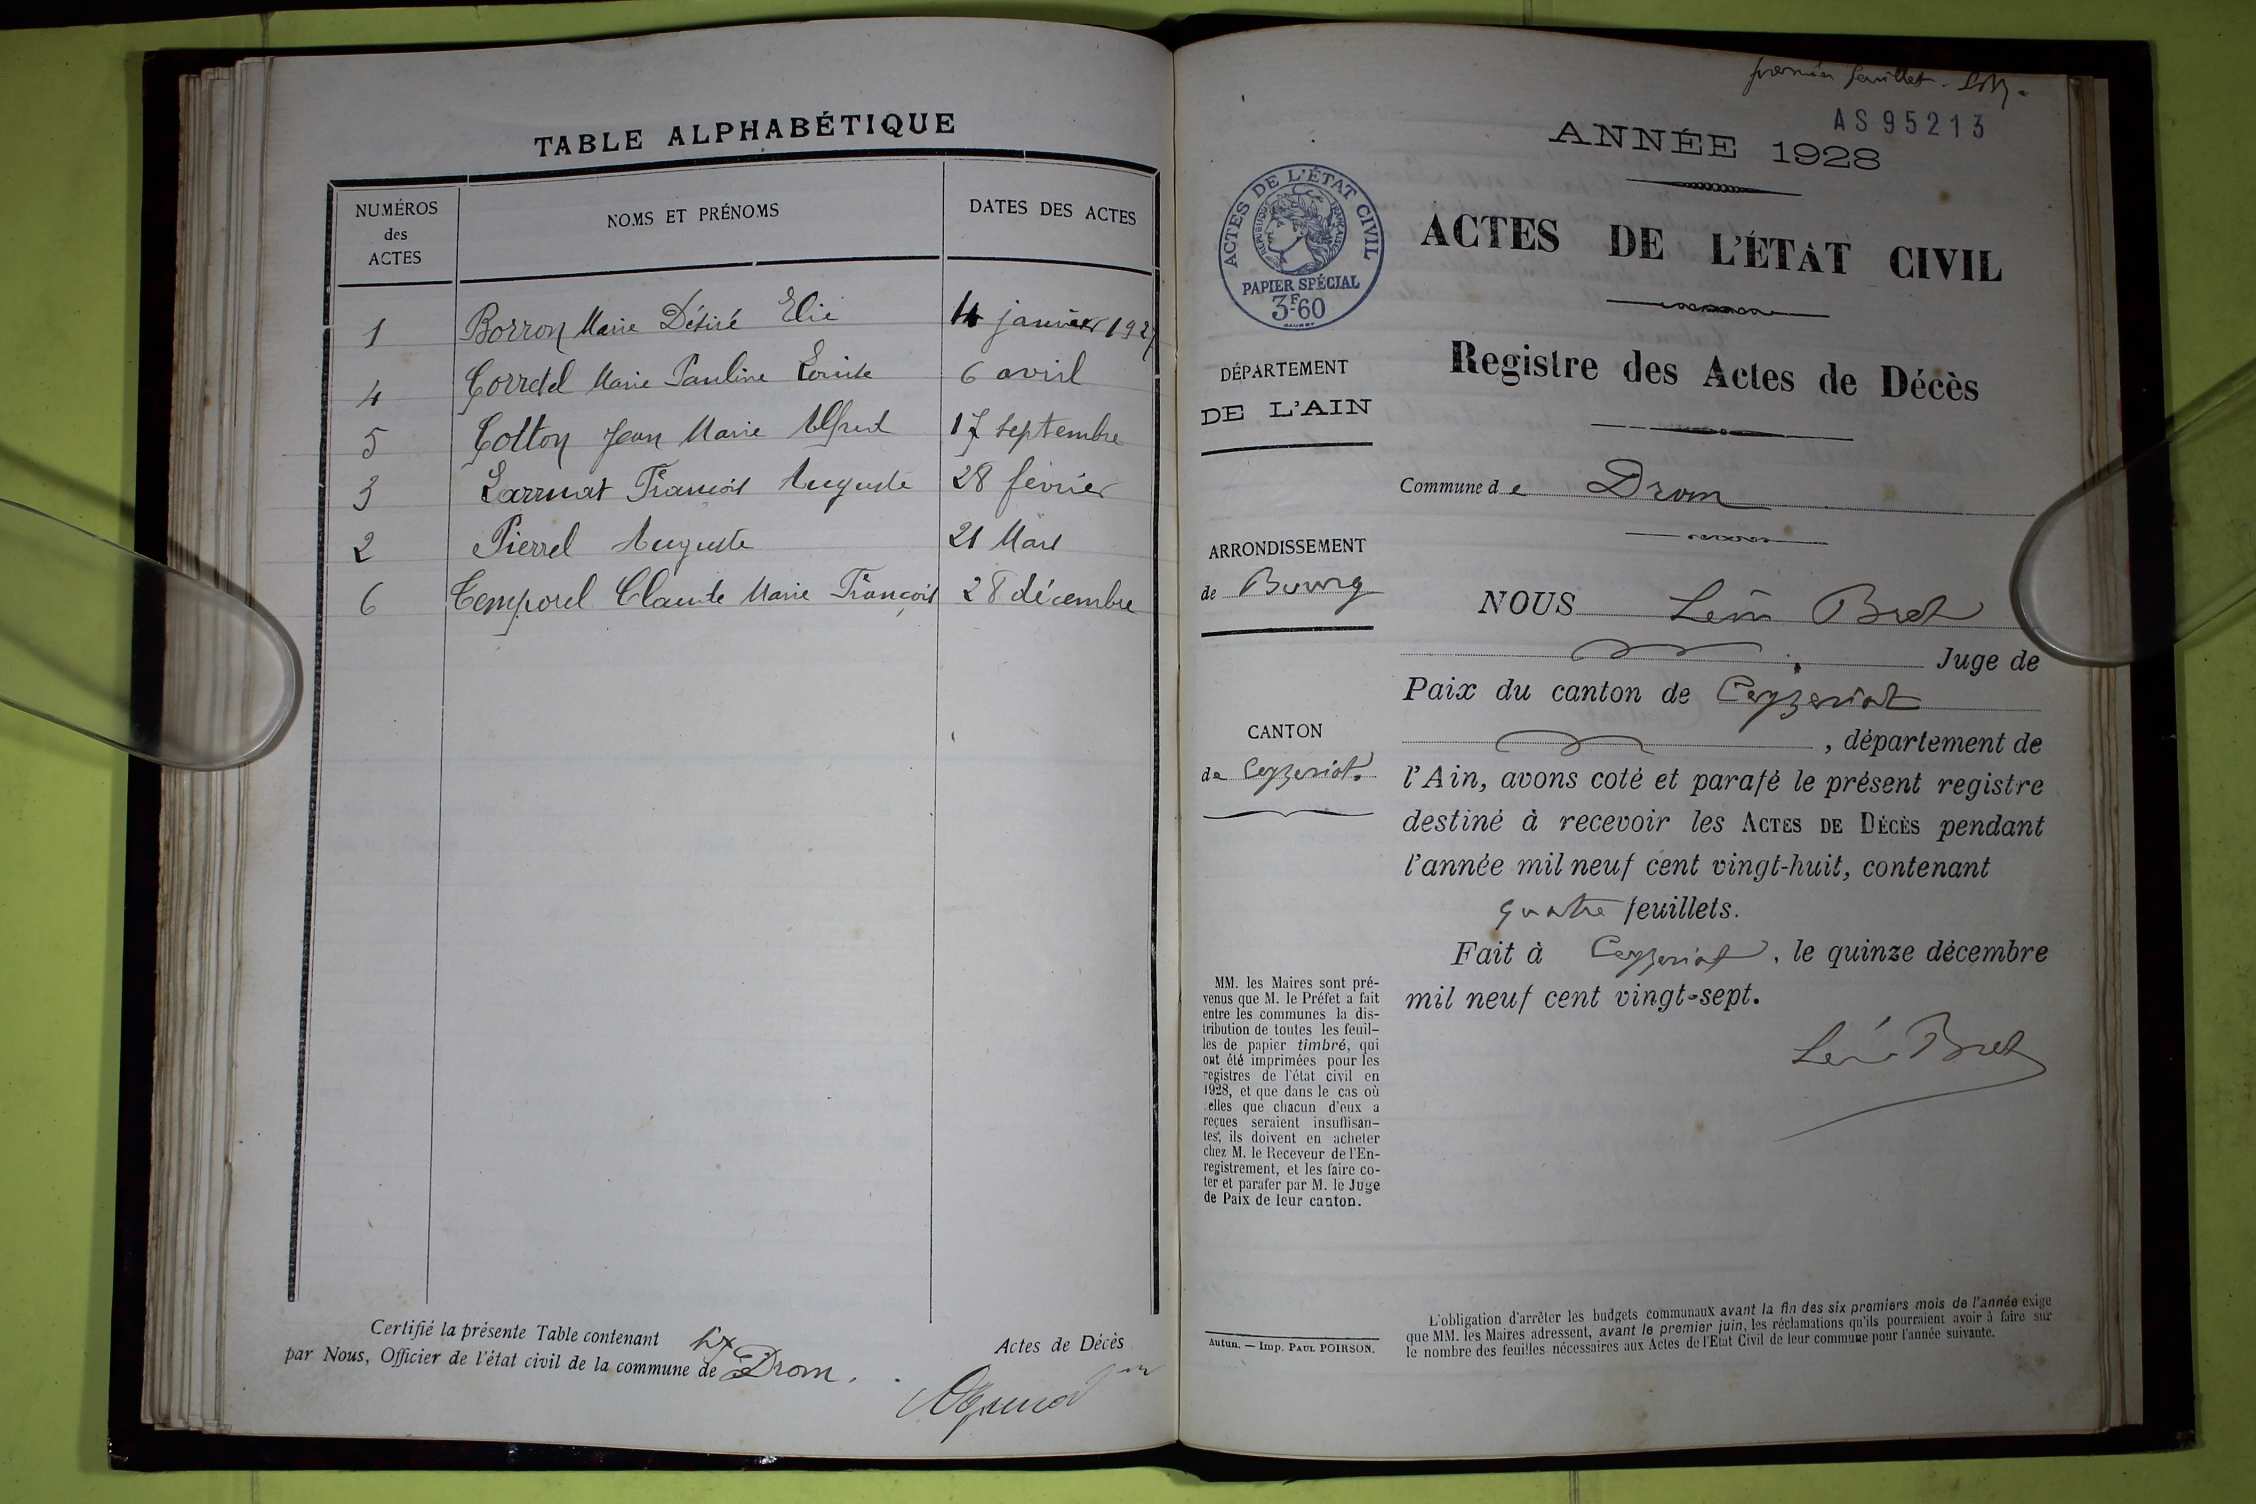 TABLE ALPHABÉTIQUE
NUMÉROS des ACTES
NOMS ET PRÉNOMS
DATES DES ACTES
1 Borron Marie Désiré Elie 14 janvier 1927
4 Corretel Marie Pauline Louise 6 avril
5 Cotton Jean Marie Alfred 17 septembre
3 François Auguste 28 février
2 Pierrel Auguste 21 Mars
6 Temporel Claude Marie François 28 décembre
Certifié la présente Table contenant six Actes de Décès
par Nous, Officier de l'état civil de la commune de Drom.
premier feuillet.
AS95213
ANNÉE 1928
ACTES DE L'ÉTAT CIVIL
RÉPUBLIQUE FRANÇAISE
PAPIER SPÉCIAL
3F60
ACTES DE L'ÉTAT CIVIL
Registre des Actes de Décès
DÉPARTEMENT
DE L'AIN
ARRONDISSEMENT
de Bourg
CANTON
de Ceyzeriat.
MM. les Maires sont pré-
venus que M. le Préfet a fait
entre les communes la dis-
tribution de toutes les feuil-
les de papier timbré, qui
ont été imprimées pour les
registres de l'état civil en
1928, et que dans le cas où
celles que chacun d'eux a
reçues seraient insuffisan-
tes, ils doivent en acheter
chez M. le Receveur de l'En-
registrement, et les faire co-
ter et parafer par M. le Juge
de Paix de leur canton.
Autun. — Imp. PAUL POIRSON.
Commune de Drom
NOUS Léon Bret
Juge de
Paix du canton de Ceyzeriat
, département de
l'Ain, avons coté et parafé le présent registre
destiné à recevoir les ACTES DE DÉCÈS pendant
l'année mil neuf cent vingt-huit, contenant
quatre feuillets.
Fait à Ceyzeriat, le quinze décembre
mil neuf cent vingt-sept.
Léon Bret
L'obligation d'arrêter les budgets communaux avant la fin des six premiers mois de l'année exige
que MM. les Maires adressent, avant le premier juin, les réclamations qu'ils pourraient avoir à faire sur
le nombre des feuilles nécessaires aux Actes de l'Etat Civil de leur commune pour l'année suivante.